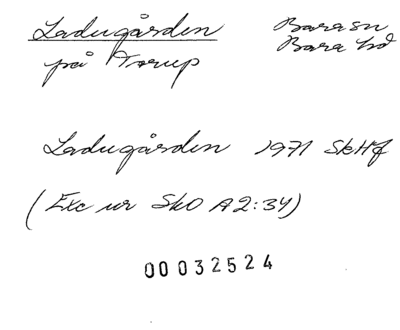 Ladugården
på Torup
Bara sn
Bara hd
Ladugården 1971 SkHf
(Exc ur SkO A2:34)
00032524